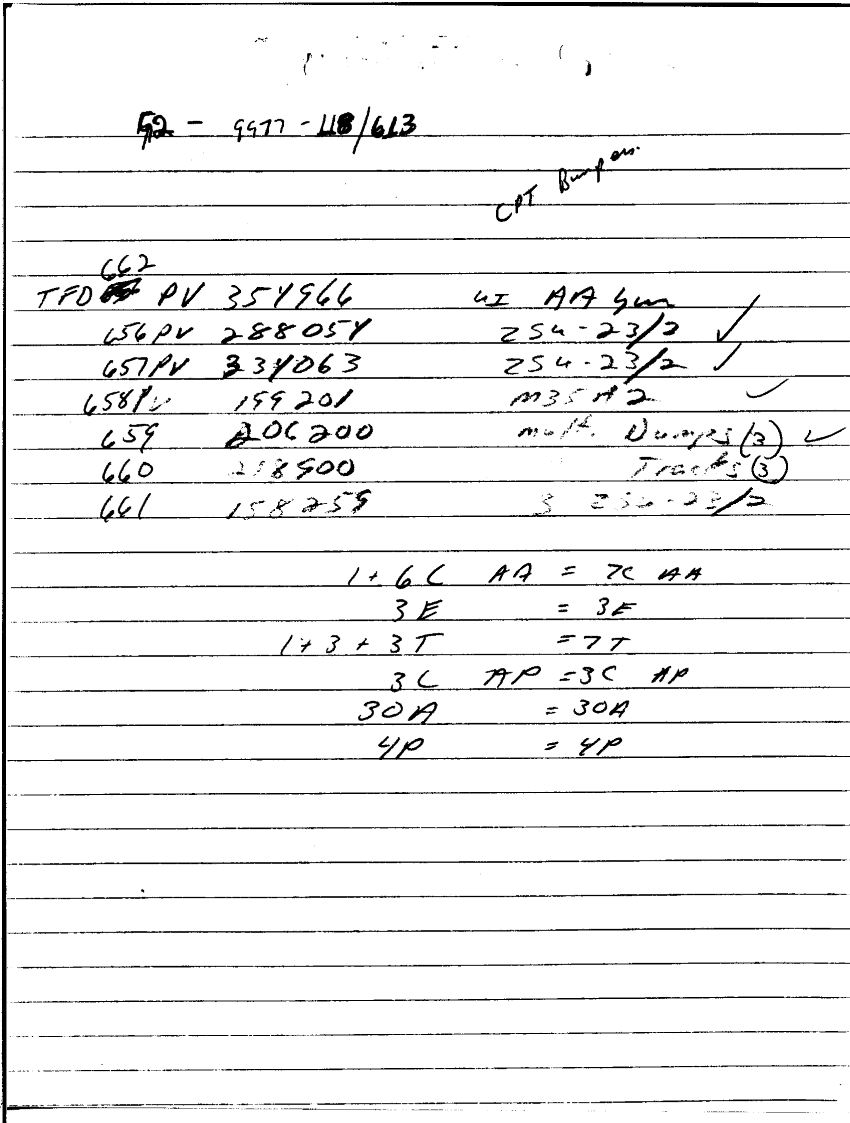 52 - 9977 - 118/613
CPT Bumpers
662
TFD PV 354966 UI AA Gun ✓
656 PV 288054 ZSU-23/2 ✓
657 PV 334063 ZSU-23/2 ✓
658 PV 199201 M35 A2 ✓
659 206200 mult. Dumps (3) ✓
660 218900 Tracks (3)
661 158259 3 ZSU-23/2
1 + 6 C AA = 7C AA
3 E = 3E
1 + 3 + 3 T = 7T
3 C AP = 3C AP
30A = 30A
4P = 4P